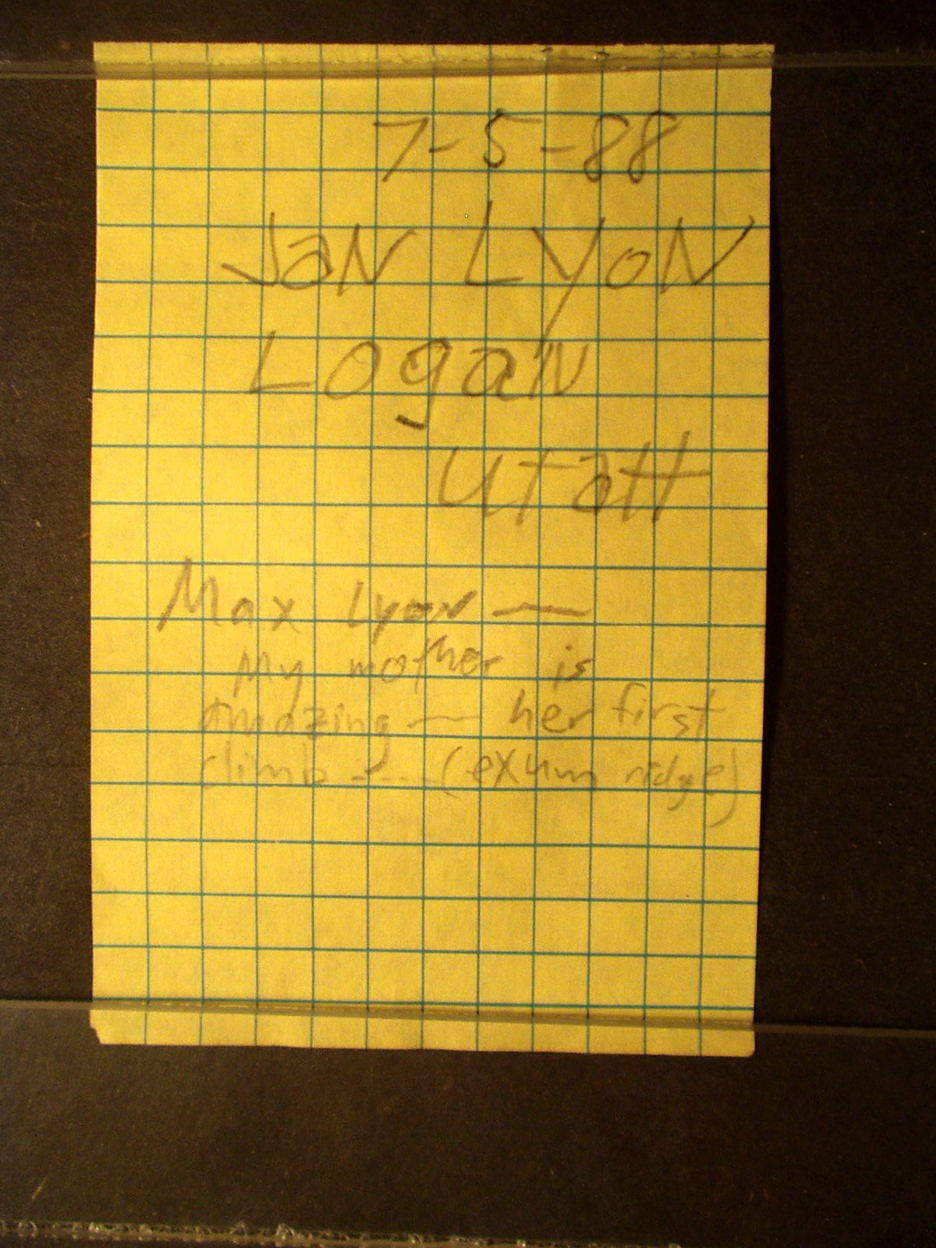 7-5-88
JaN LyoN
LogaN
UtaH
Max Lyon —
My mother is
amazing — her first
climb ---- (exum ridge)